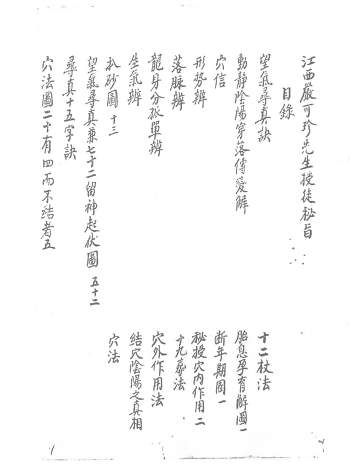 江西嚴可珍先生授徒秘旨
目錄
望氣尋真訣
動靜陰陽穿落傳變解
穴信
形勢辨
落脉辨
龍身分孤單辨
生氣辨
扒砂圖 十三
望氣尋真兼七十二留神起伏圖 五十二
尋真十五字訣
穴法圖二十有四而不結者五
十二杖法
胎息孕育解圖一
斷年期圖一
秘授穴內作用二
十九葬法
穴外作用法
結穴陰陽之真相
穴法